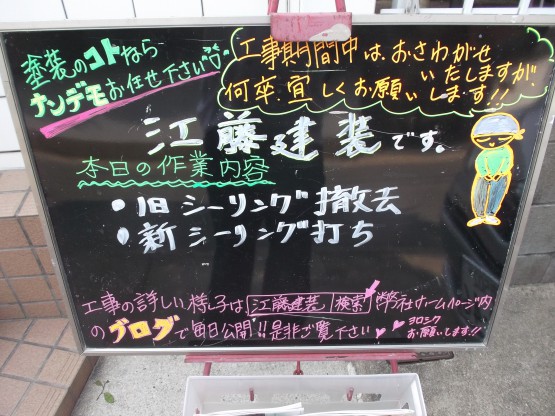 塗装のコトなら
ナンデモお任せ下さい
工事期間中は、おさわがせ
いたしますが
何卒、宜しくお願いします!!
江藤建装です。
本日の作業内容
・旧シーリング撤去
・新シーリング打ち
工事の詳しい様子は 江藤建装 検索 弊社ホームページ内
のブログで毎日公開!!是非ご覧下さい
ヨロシク
お願いします!!